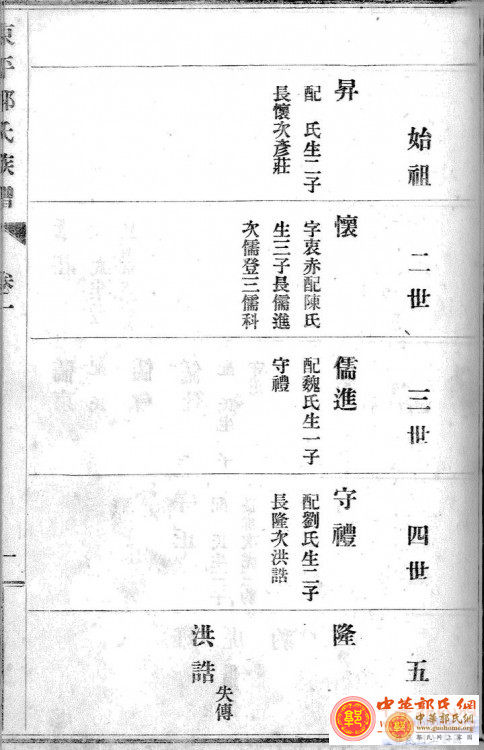 始祖
昇
配　氏生二子
長懷次彥莊
二世
懷
字衷赤配陳氏
生三子長儒進
次儒登三儒科
三世
儒進
配魏氏生一子
守禮
四世
守禮
配劉氏生二子
長隆次洪誥
五
隆
洪誥
失傳
東平郭氏族譜
卷一
一
中華郭氏網
中華郭氏網
www.guohome.org
郭氏網上家園